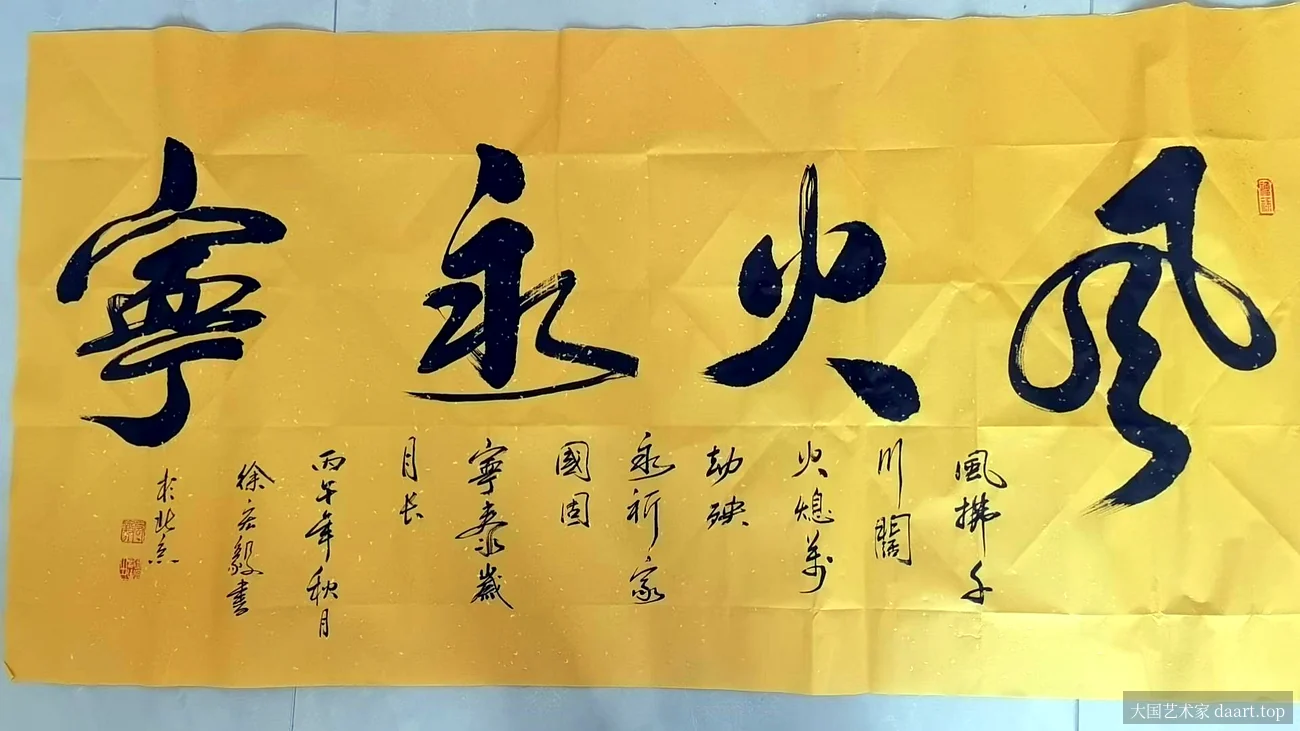 風火永寧
風拂千
川闊
火熄萬
劫殃
永祈家
國固
寧泰歲
月长
丙午年秋月
徐宏毅書
於北京
大国艺术家 daart.top